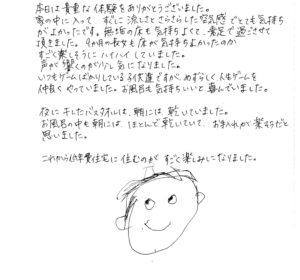 本日は貴重な体験をありがとうございました。
家の中に入って、すぐに涼しさとさらさらした空気感でとても気持ち
がよかったです。無垢の床も気持ちよくて、素足で過ごさせて
頂きました。9か月の長女も床が気持ちよかったのか
すごく楽しそうにハイハイしていました。
声が響くのがうれしい気になりました。
いつもゲームばかりしている5才児ですが、めずらしく人生ゲームを
仲良くやっていました。お風呂も気持ちいいと喜んでいました。
夜に干したバスタオルは、朝には、乾いていました。
お風呂の中も朝には、ほとんど乾いていて、お手入れが楽そうだと
思いました。
これから住宅に住むのがすごく楽しみになりました。